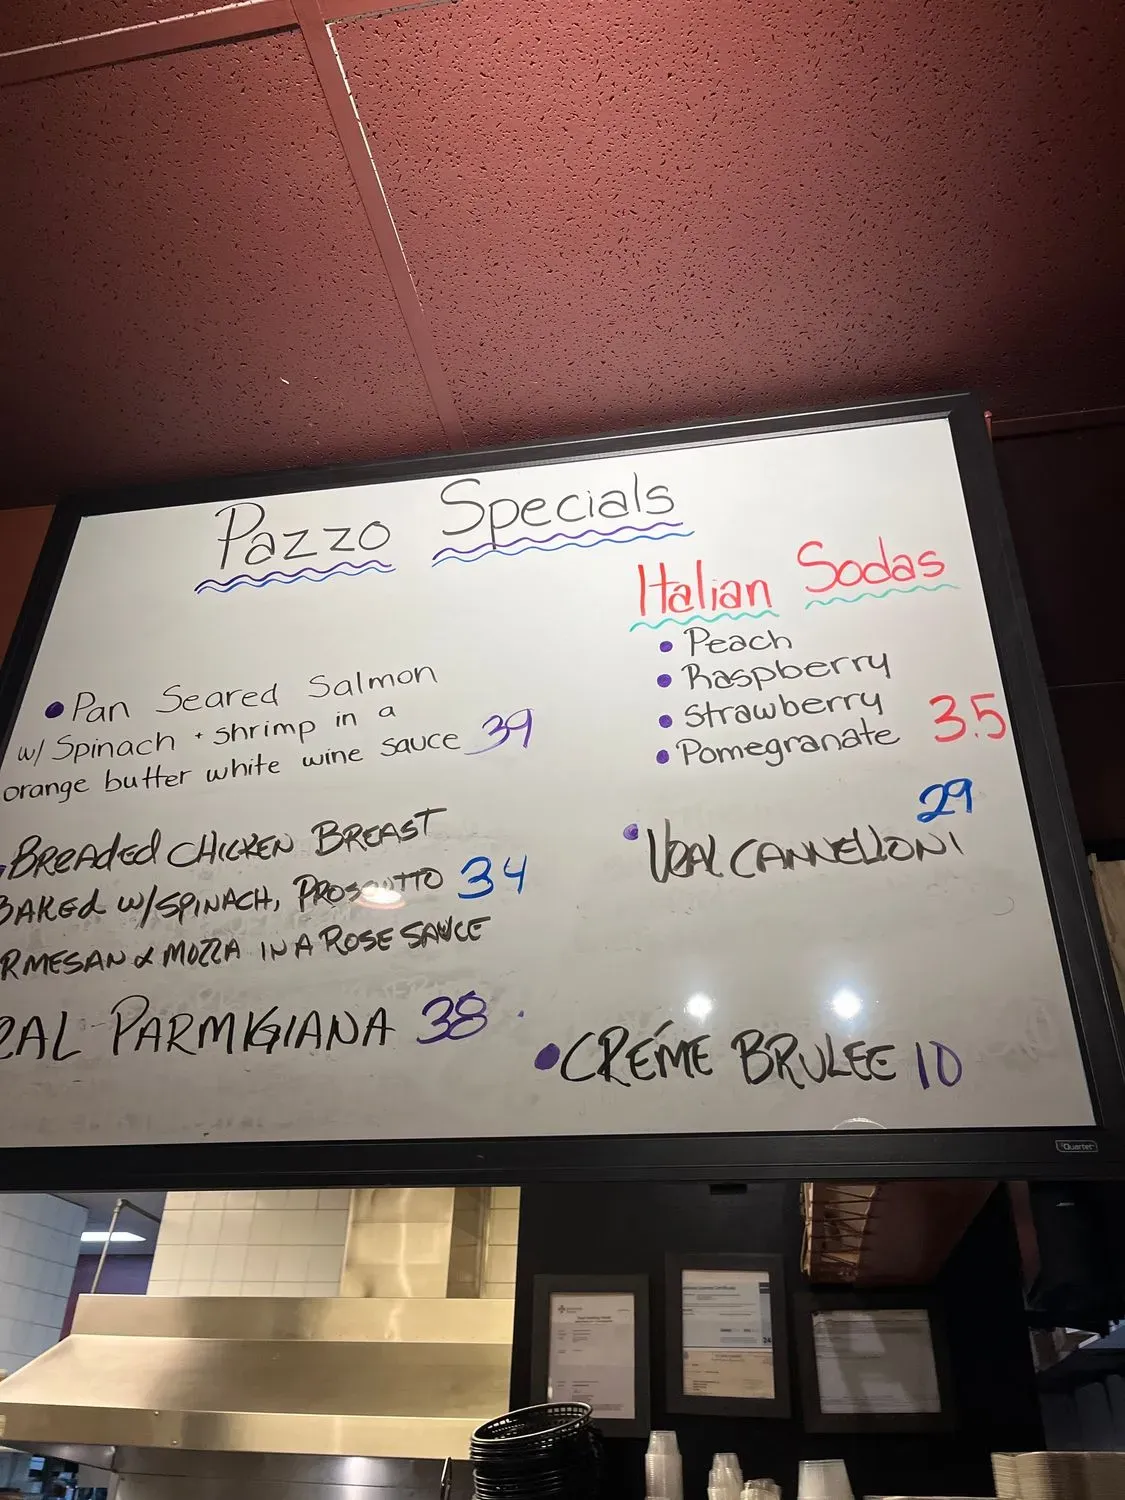 Pazzo Specials
• Pan Seared Salmon
w/ Spinach + shrimp in a
orange butter white wine sauce 39
BREADED CHICKEN BREAST
BAKED W/SPINACH, PROSCUTTO 34
RMESAN & MOZZA IN A ROSE SAUCE
EAL PARMIGIANA 38
Italian Sodas
• Peach
• Raspberry
• Strawberry
• Pomegranate 3.5
29
• VEAL CANNELLONI
• CRÉME BRULEE 10
Quartet